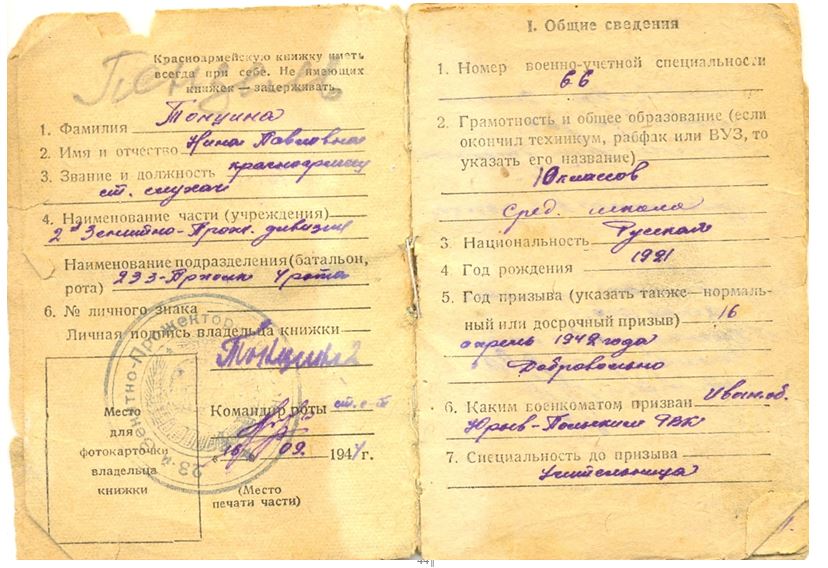 Красноармейскую книжку иметь
всегда при себе. Не имеющих
книжек — задерживать
1. Фамилия Тонцина
2. Имя и отчество Нина Павловна
3. Звание и должность красноармеец
ст. слухач
4. Наименование части (учреждения)
2й Зенитно-Прож. дивизия
Наименование подразделения (батальон,
рота) 23 З-Прполк 4 рота
6. № личного знака
Личная подпись владельца книжки
Зенитно-Прожектор
23-й
Место
для
фотокарточки
владельца
книжки
Командир роты ст. л-т
16 09. 1944 г.
(Место
печати части)
I. Общие сведения
1. Номер военно-учетной специальности
66
2. Грамотность и общее образование (если
окончил техникум, рабфак или ВУЗ, то
указать его название)
10 классов
сред. школа
3. Национальность Русская
4. Год рождения 1921
5. Год призыва (указать также — нормаль-
ный или досрочный призыв) 16
апрель 1942 года
Добровольно
6. Каким военкоматом призван Иван. об.
Юрьев-Польским РВК
7. Специальность до призыва
Учительница
44